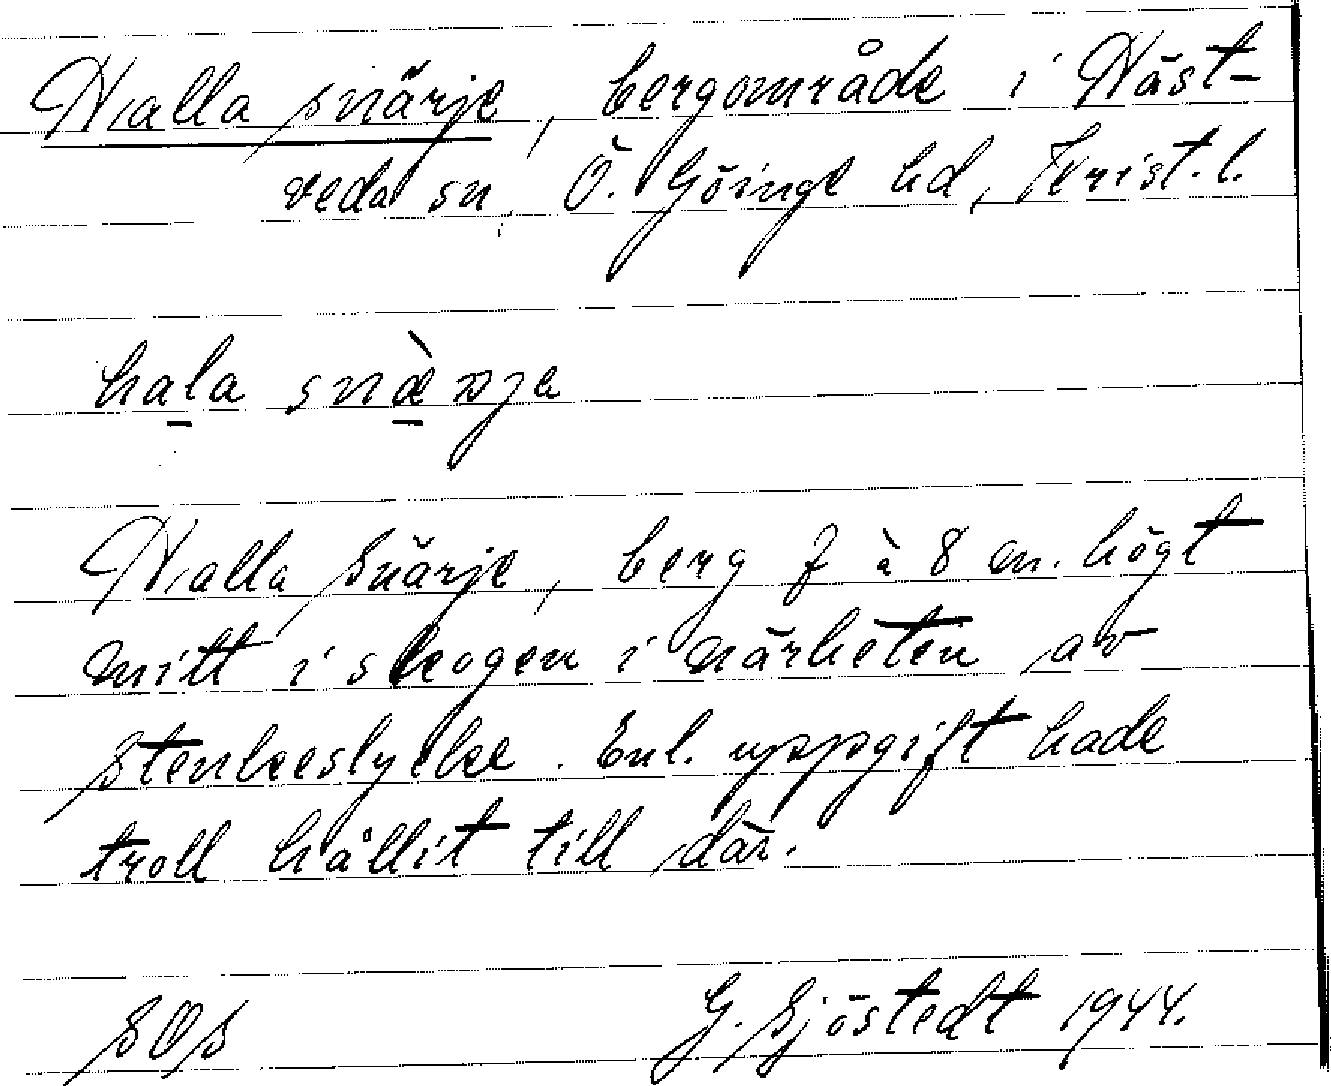 Halla snärje, bergområde i Häst-
veda sn, Ö. Göinge hd, Krist. l.
hala snæ̀rja
Halla Snärje, berg 7 à 8 m. högt
mitt i skogen i närheten av
Stenkeslycke. Enl. uppgift hade
troll hållit till där.
SOS G. Sjöstedt 1944.